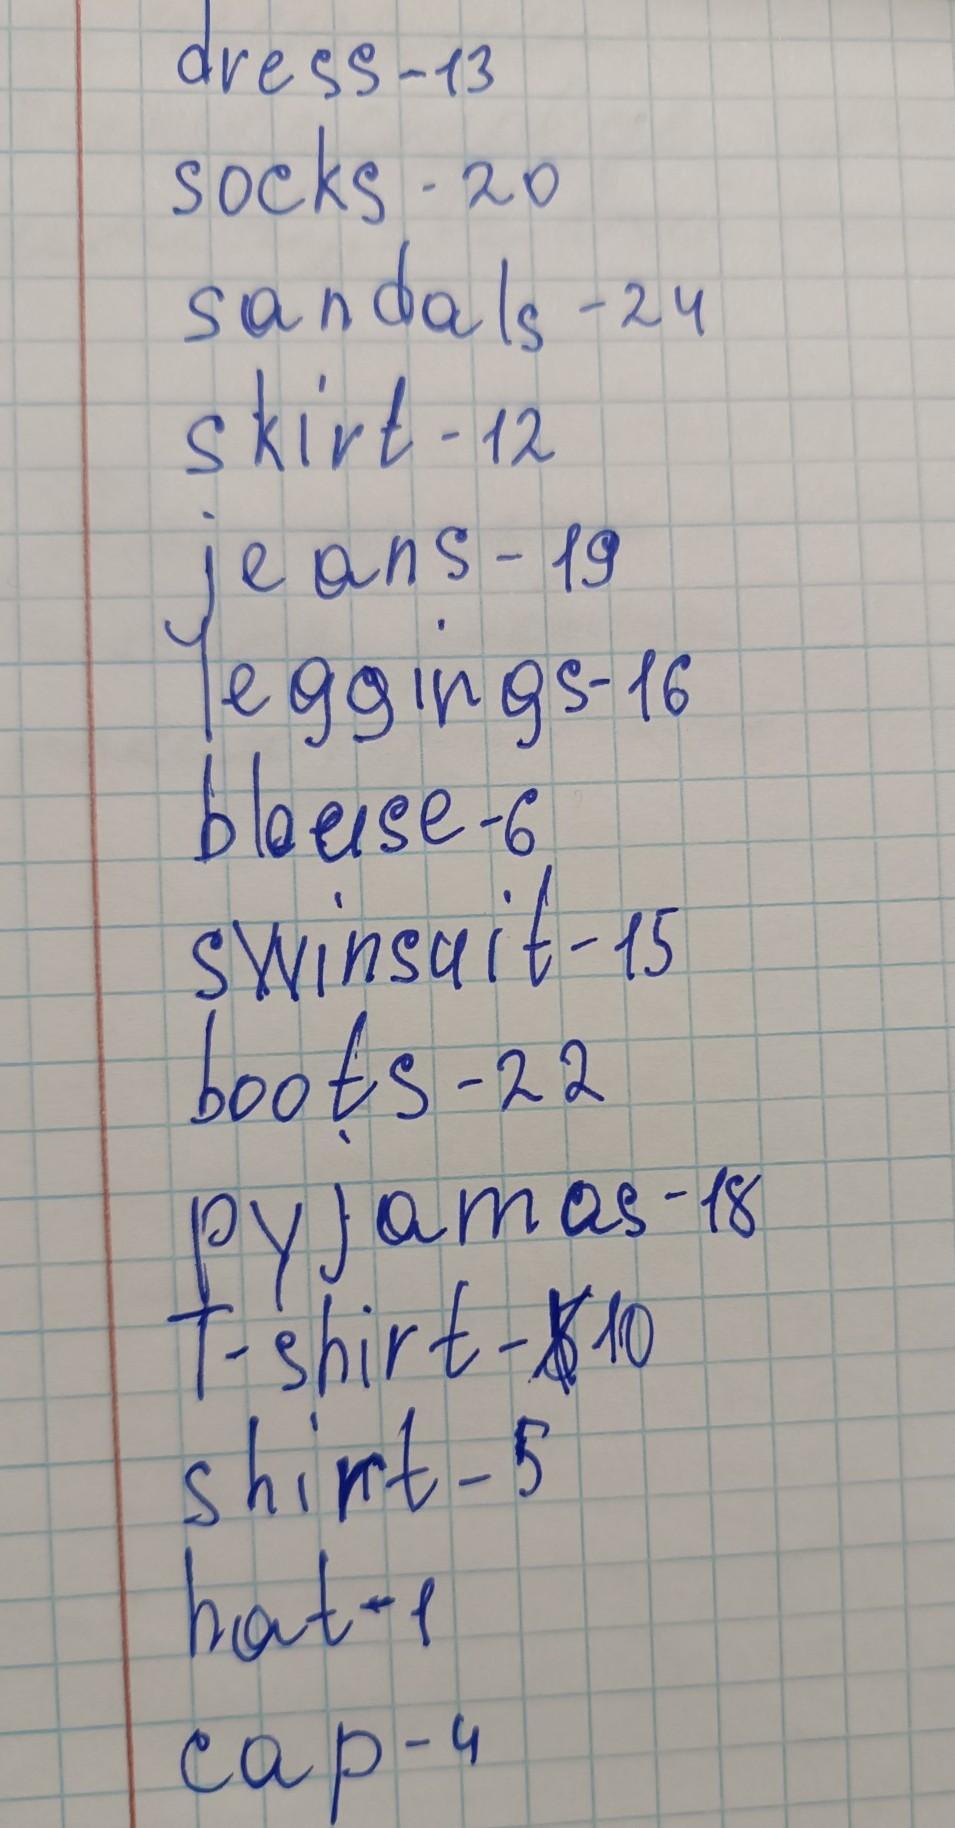 dress-13
socks - 20
sandals - 24
skirt - 12
jeans - 19
leggings-16
blouse-6
swinsuit-15
boots - 22
pyjamas-18
T-shirt-10
shirt-5
hat-1
cap-4